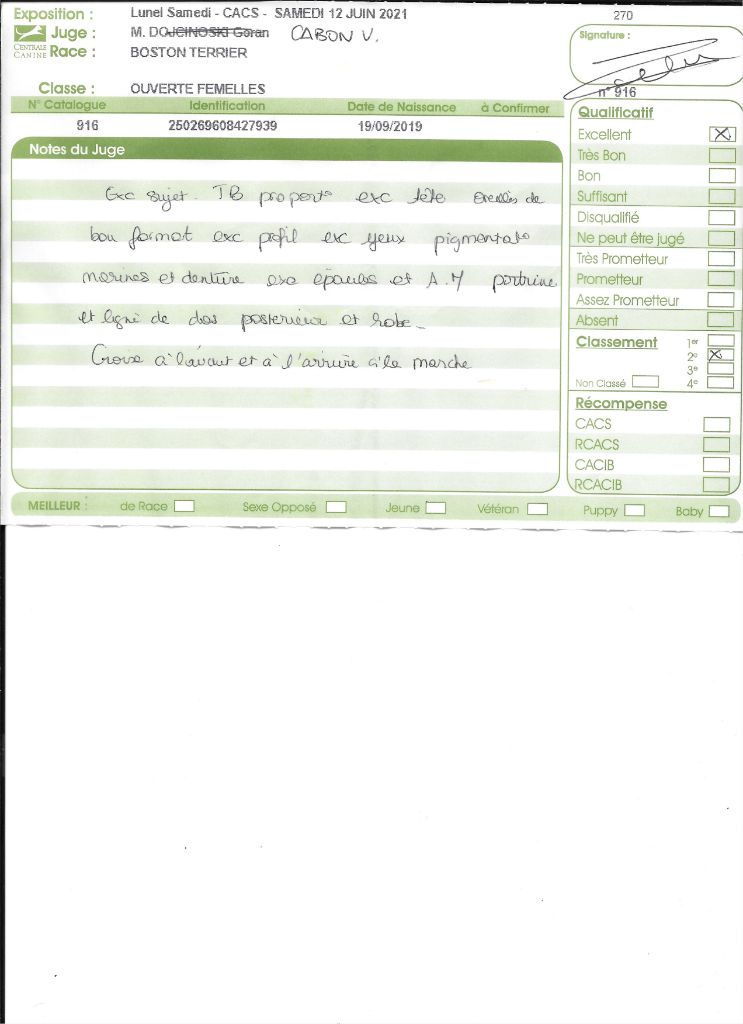 Exposition : Lunel Samedi - CACS - SAMEDI 12 JUIN 2021
270
Juge : M. DOJCINOSKI Goran CABON V.
CENTRALE CANINE
Race : BOSTON TERRIER
Signature :
Classe : OUVERTE FEMELLES
n° 916
N° Catalogue Identification Date de Naissance à Confirmer
916 250269608427939 19/09/2019
Notes du Juge
Exc sujet. TB proport° exc tête oreilles de
bon format exc profil exc yeux pigmentat°
narines et denture exc epaules et A.M poitrine
et ligne de dos posterieur et robe_
Croise à l'avant et à l'arrière à la marche
Qualificatif
Excellent
Très Bon
Bon
Suffisant
Disqualifié
Ne peut être jugé
Très Prometteur
Prometteur
Assez Prometteur
Absent
Classement 1er
2e
3e
Non Classé 4e
Récompense
CACS
RCACS
CACIB
RCACIB
MEILLEUR : de Race Sexe Opposé Jeune Vétéran Puppy Baby